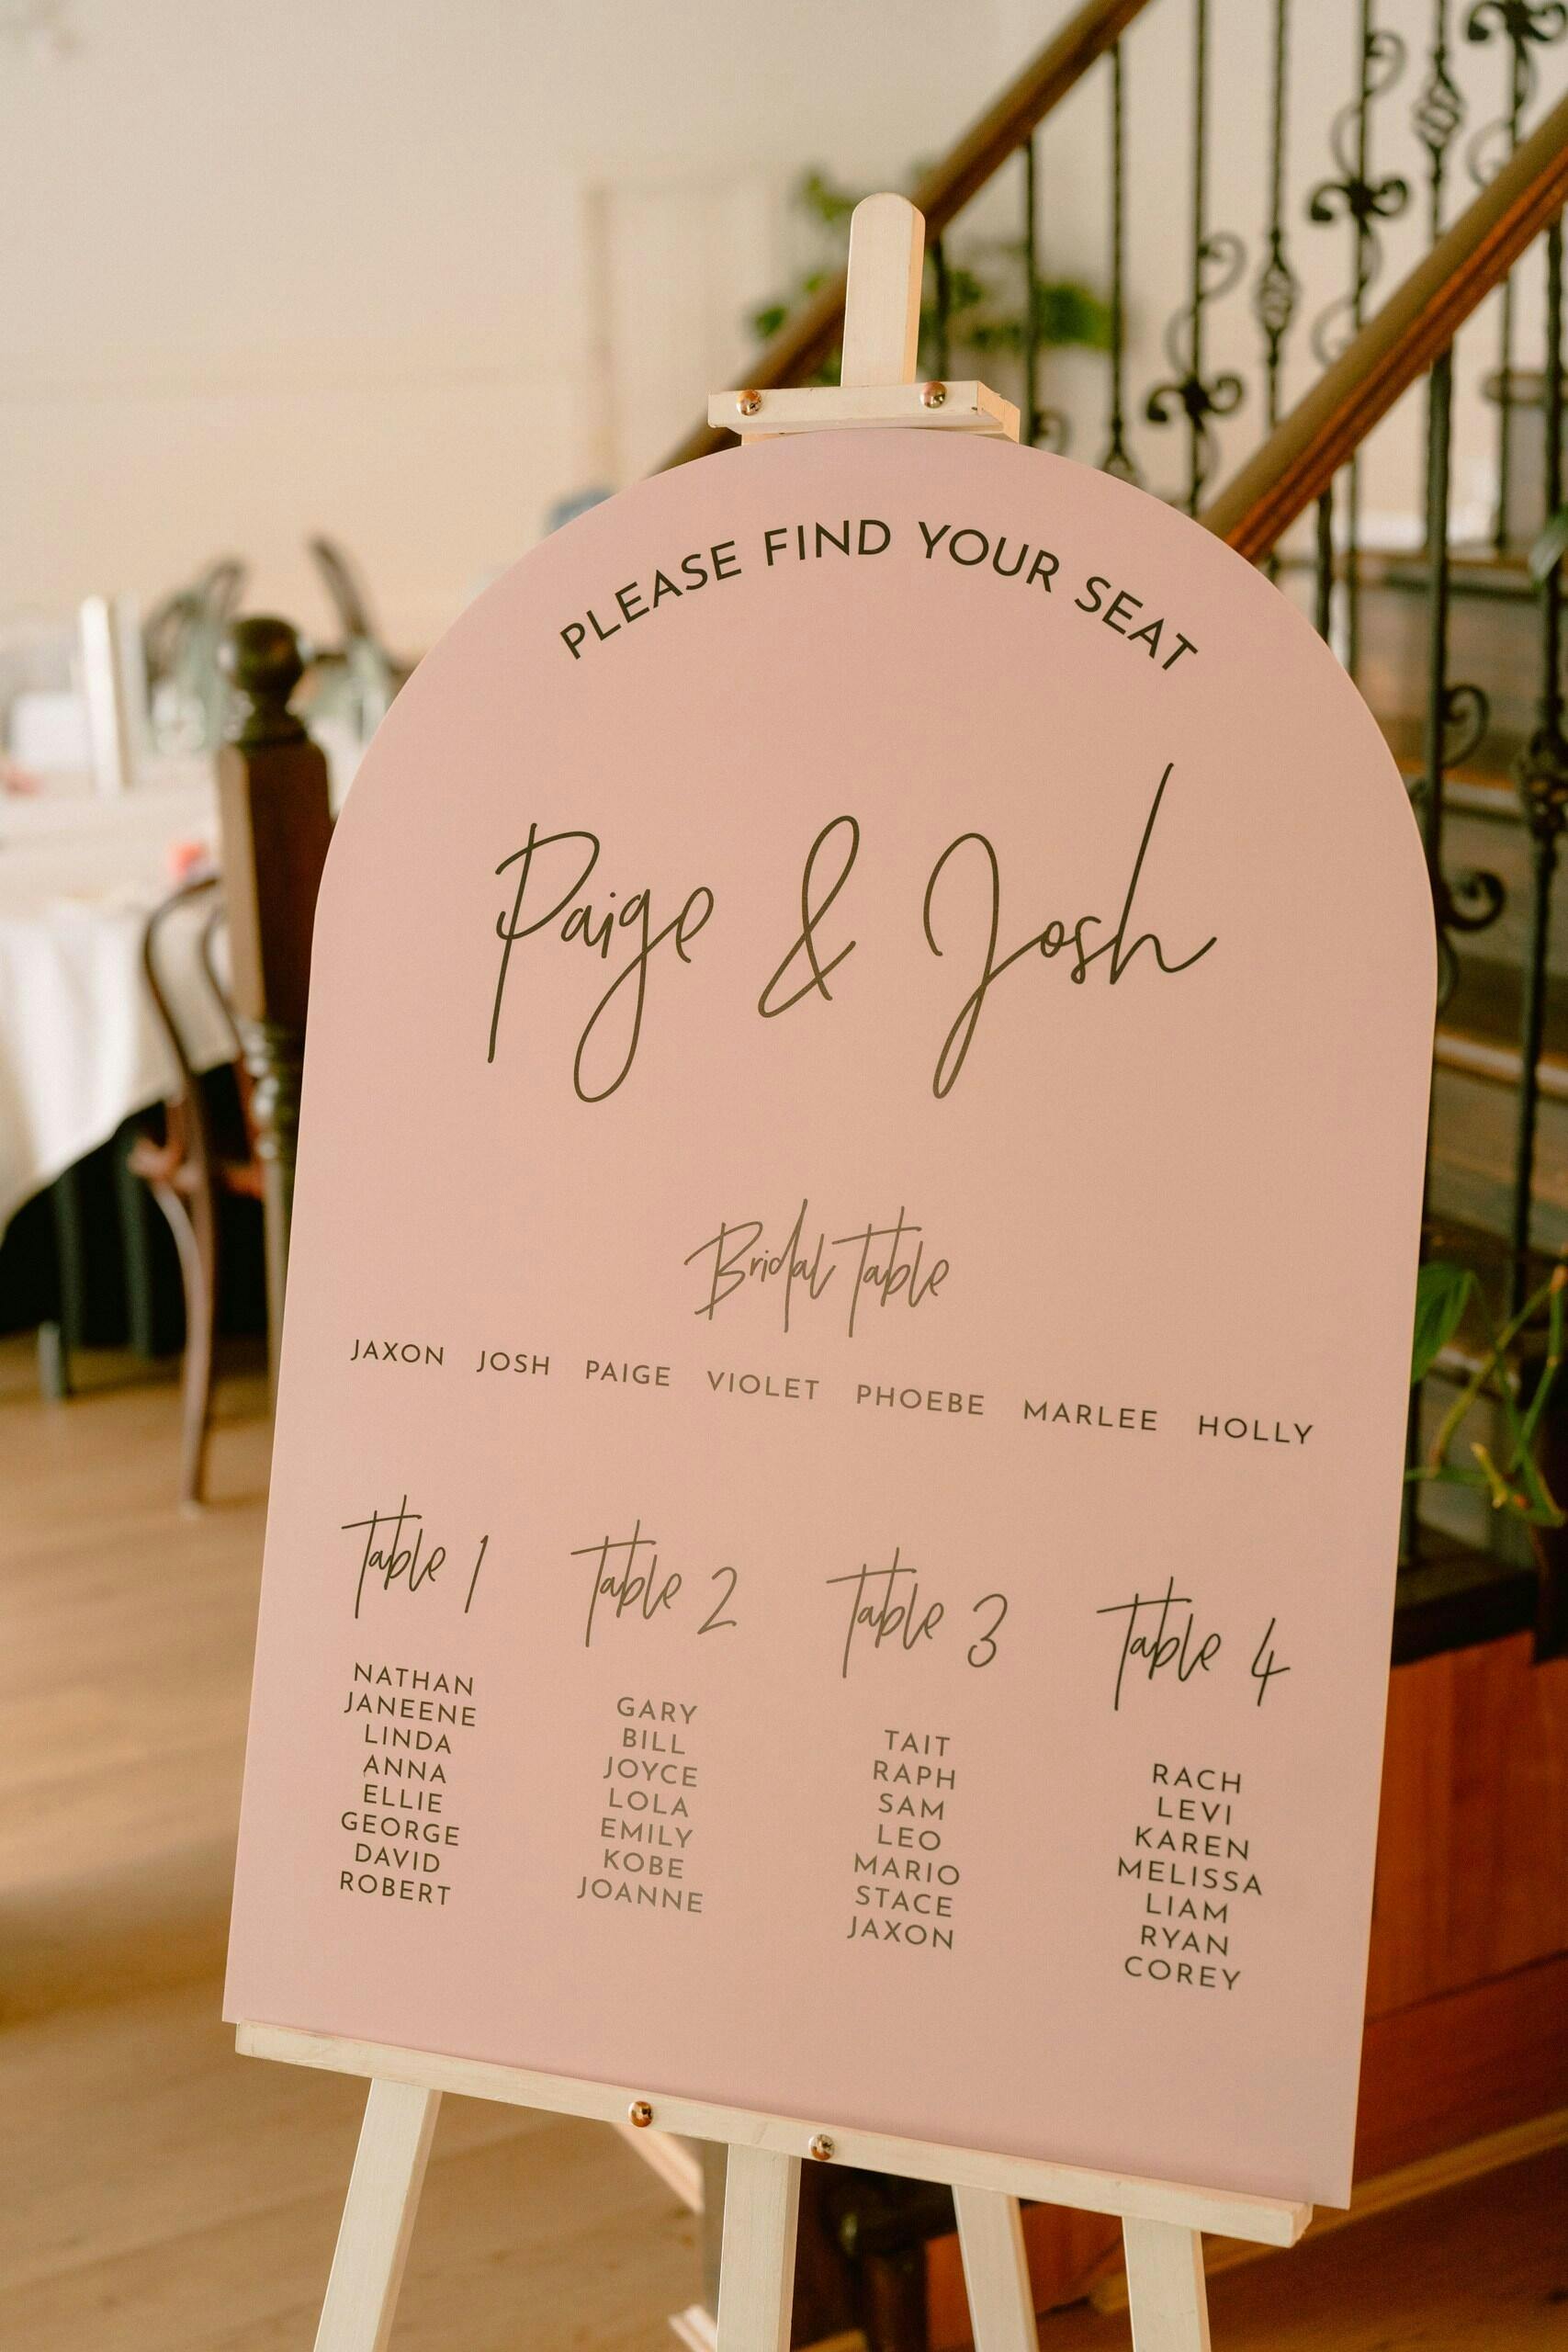 PLEASE FIND YOUR SEAT
Paige & Josh
Bridal Table
JAXON JOSH PAIGE VIOLET PHOEBE MARLEE HOLLY
Table 1
NATHAN
JANEENE
LINDA
ANNA
ELLIE
GEORGE
DAVID
ROBERT
Table 2
GARY
BILL
JOYCE
LOLA
EMILY
KOBE
JOANNE
Table 3
TAIT
RAPH
SAM
LEO
MARIO
STACE
JAXON
Table 4
RACH
LEVI
KAREN
MELISSA
LIAM
RYAN
COREY